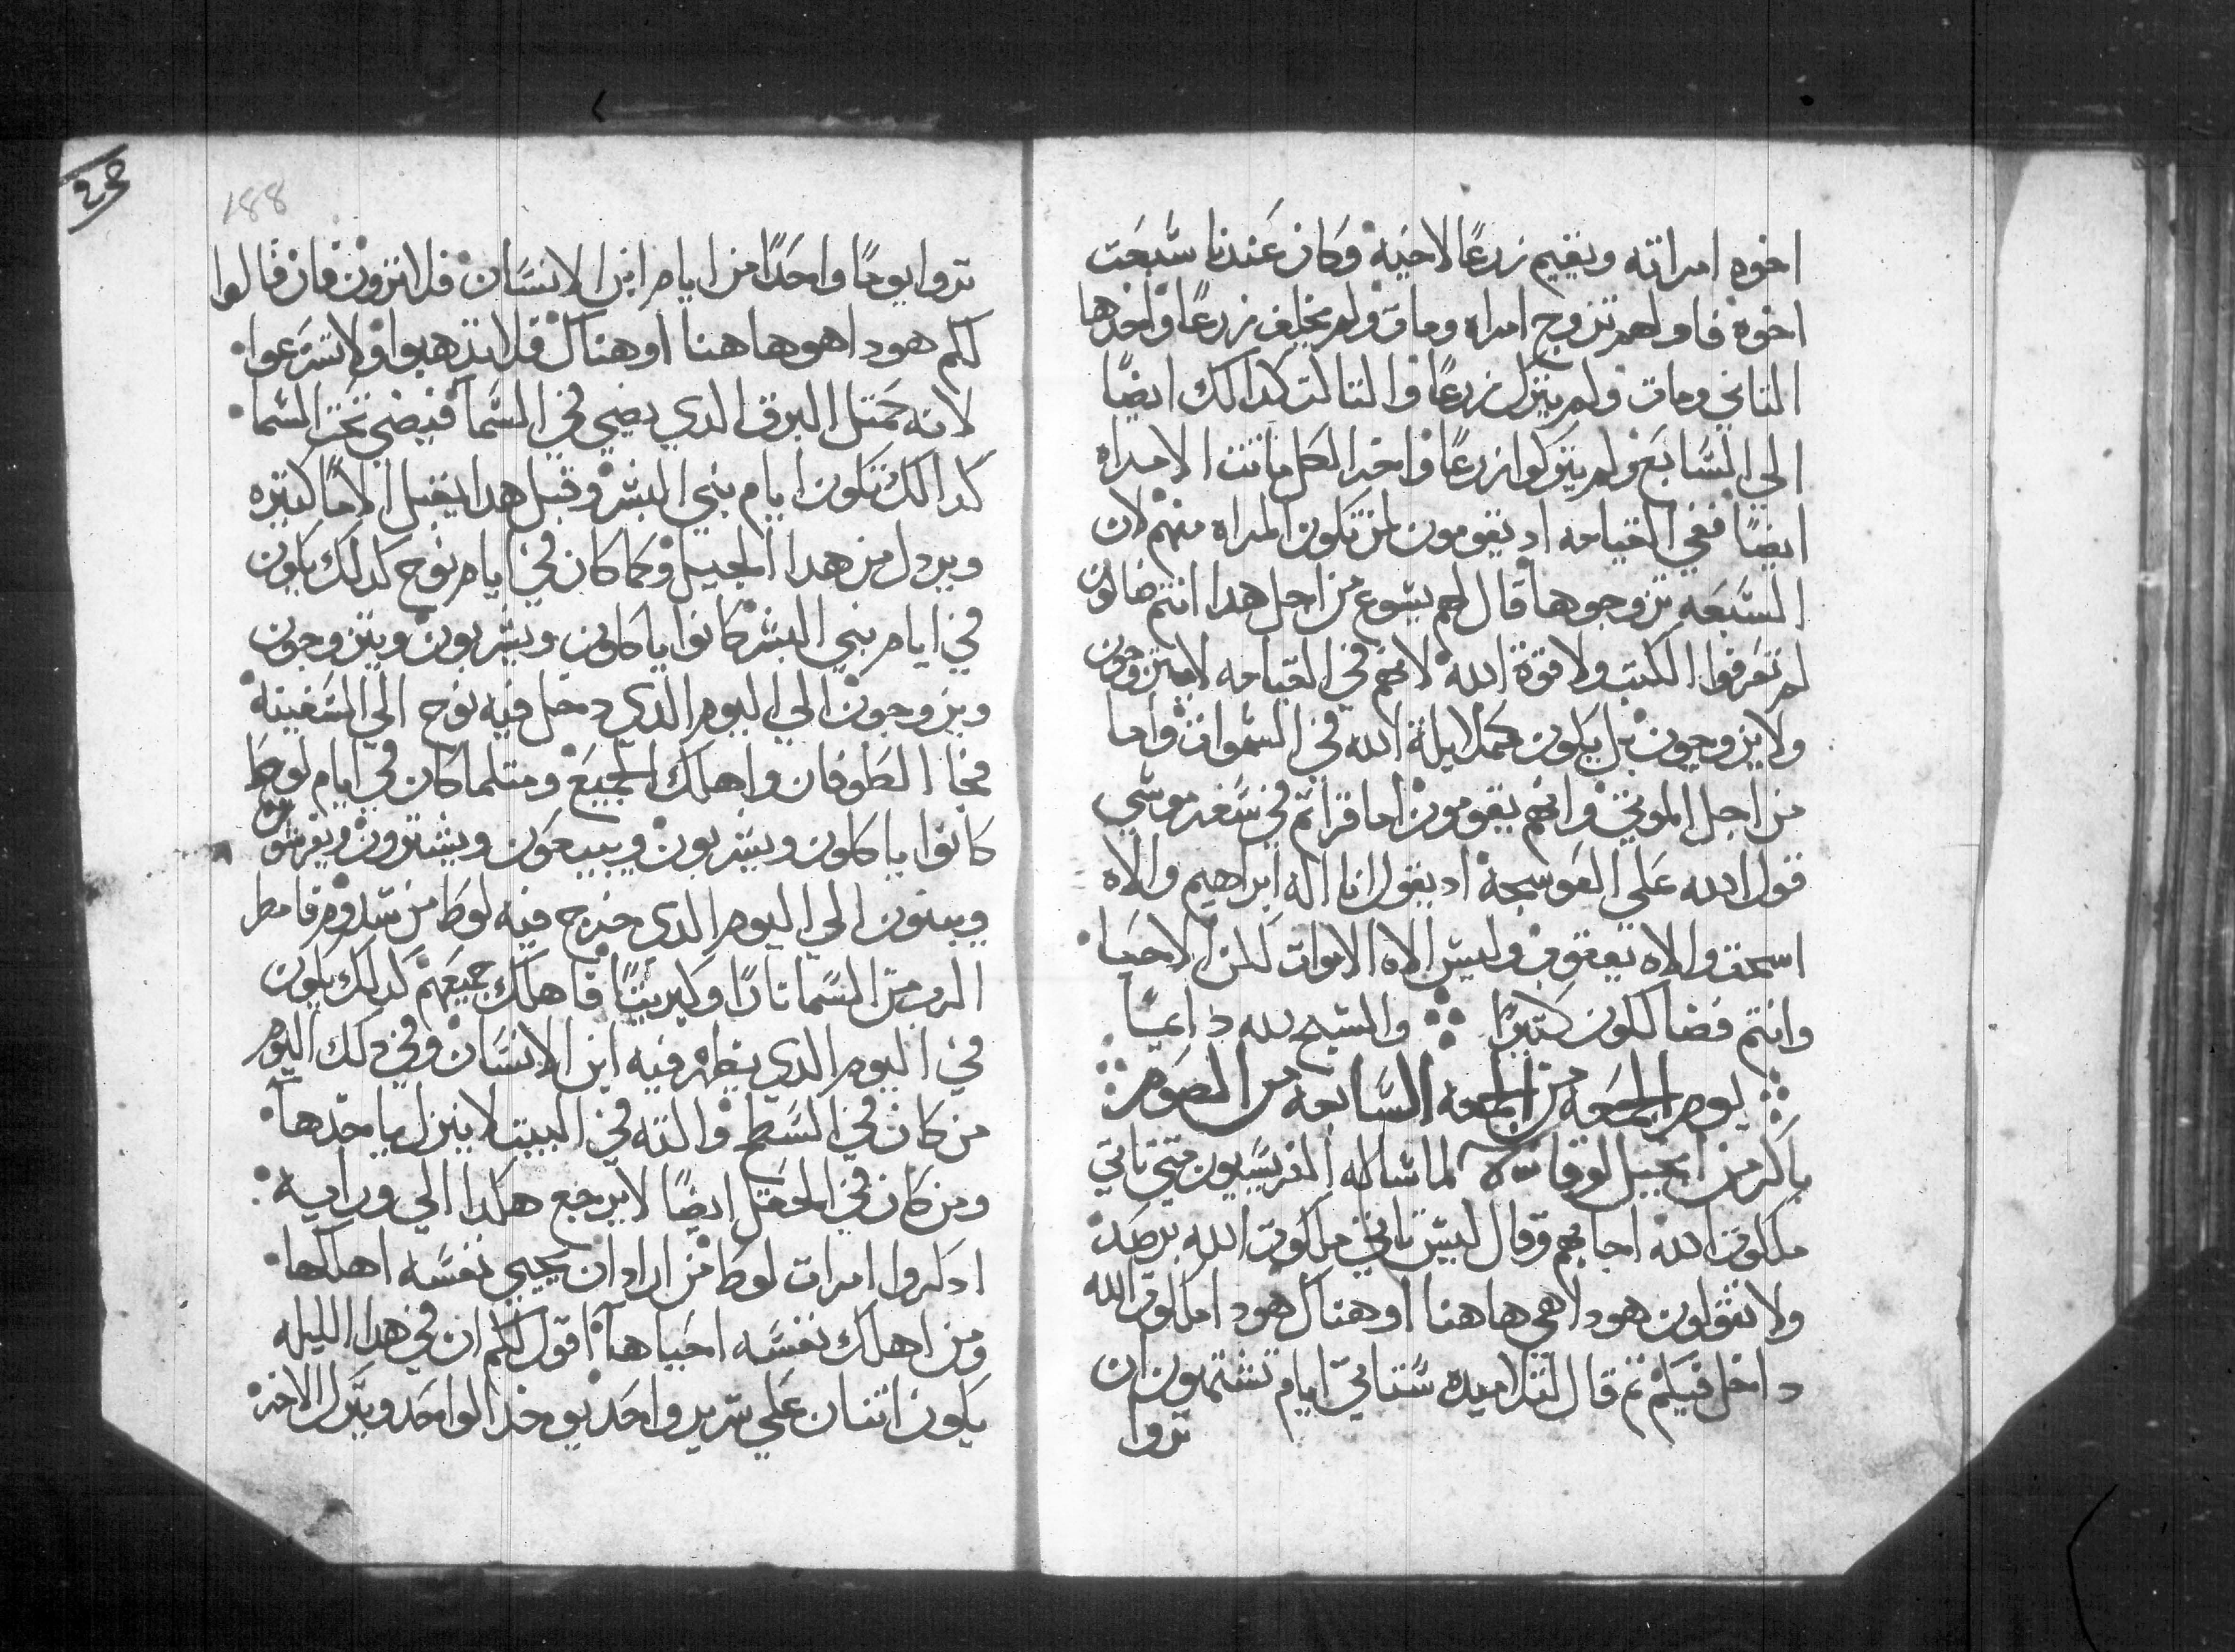 اخوه امراته ويقيم زرعًا لاخيه وكان عندنا سبعت
اخوة فاولهم تزوج امراه ومات ولم يخلف زرعًا واخدها
التاني ومات ولم يترك زرعًا والتالت كدالك ايضًا
الي السابع ولم يتركوا زرعًا واخر الكل ماتت الامراه
ايضًا ففي القيامه اد يقومون لمن تكون المراه منهم لان
السبعه تزوجوها قال لهم يسوع من اجل هدا انتم ضالون
لم تعرفوا الكتب ولا قوة الله لانهم في القيامه لا يتزوجون
ولا يزوجون بل يكون كملايكة الله في السموات واما
من اجل الموتي وانهم يقومون اما قراتم في سفر موسي
قول الله علي العوسجة اد يقول انا اله ابراهيم والاه
اسحق والاه يعقوب وليس الاه الاموات لكن الاحيا
وانتم فضاللون كتيرًا والسبح لله دايمًا
يوم الجمعه من الجمعه السابعه من الصوم
باكر من انجيل لوقا لما ساله الفريسيون متي تاتي
ملكوت الله اجابهم وقال ليس تاتي ملكوت الله برصد
ولا يقولون هودا هي هاهنا او هناك هودا ملكوت الله
داخل فيكم تم قال لتلاميده ستاتي ايام تشتهون ان
تروا
188
تروا يومًا واحدًا من ايام ابن الانسان فلا ترون فان قالوا
لكم هودا هو هاهنا او هناك فلا تدهبوا ولا تسرعوا
لانه كمتل البرق الدي يضي في السما فيضي تحت السما
كدالك تكون ايام بني البشر وقبل هدا يقبل الامًا كتيره
ويردل من هدا الجيل وكما كان في ايام نوح كدلك يكون
في ايام بني البشر كانوا ياكلون ويشربون ويتزوجون
ويزوجون الي اليوم الدي دخل فيه نوح الي السفينة
فجا الطوفان واهلك الجميع ومتلما كان في ايام لوط
كانوا ياكلون ويشربون ويبيعون ويشترون ويغرسون
ويبنون الي اليوم الدي خرج فيه لوط من سدوم فامطر
الرب من السما نارًا وكبريتًا فاهلك جميعهم كدلك يكون
في اليوم الدي يظهر فيه ابن الانسان وفي دلك اليوم
من كان في السطح والته في البيت لا ينزل ياخدها
ومن كان في الحقل ايضًا لا يرجع هكدا الي ورايه
ادكروا امرات لوط من اراد ان يحيي نفسه اهلكها
ومن اهلك نفسه احياها اقول لكم ان في هدا الليله
يكون اتنان علي سرير واحد يوخد الواحد ويترك الاخر